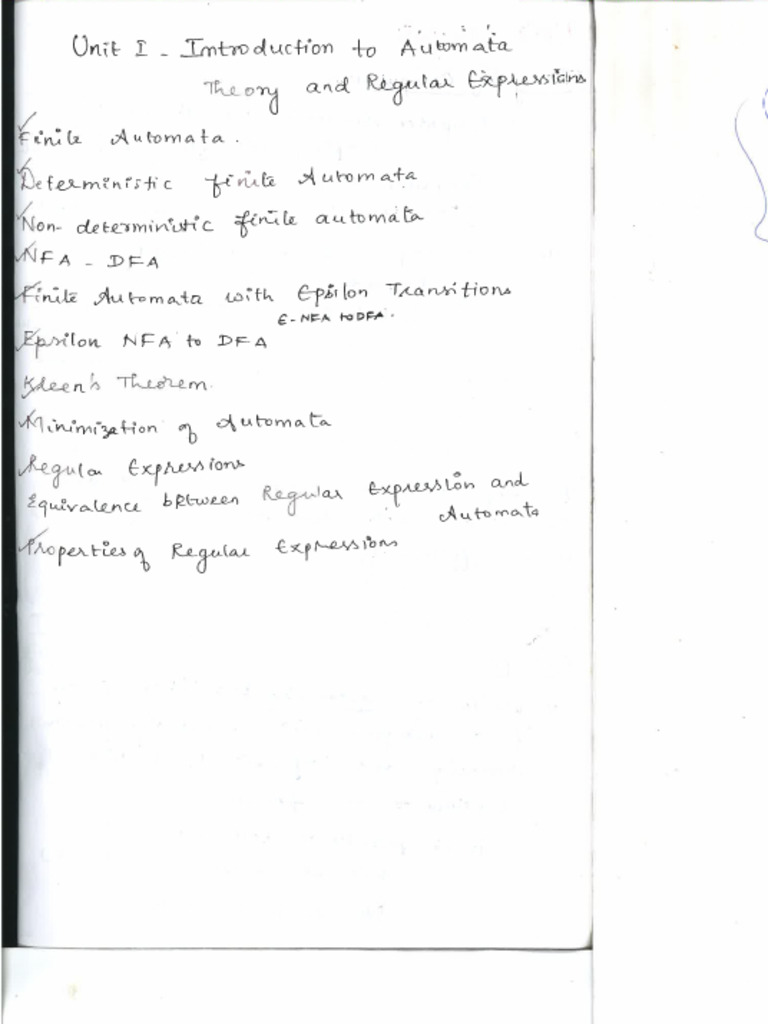 Unit I - Introduction to Automata
Theory and Regular Expressions
Finite Automata.
Deterministic finite Automata
Non-deterministic finite automata
NFA - DFA
Finite Automata with Epsilon Transitions
E-NFA to DFA.
Epsilon NFA to DFA
Kleen's Theorem.
Minimization of Automata
Regular Expressions
Equivalence between Regular Expression and
Automata
Properties of Regular Expressions